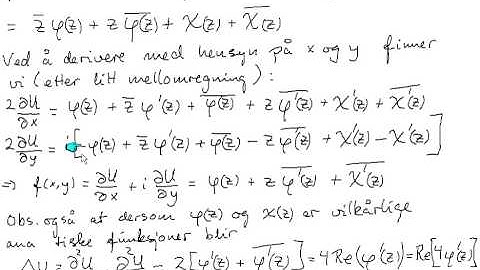 = z̅ φ(z) + z \overline{φ(z)} + χ(z) + \overline{χ(z)}
Ved å derivere med hensyn på x og y finner
vi (etter litt mellomregning):
2 ∂U/∂x = φ(z) + z̅ φ'(z) + \overline{φ(z)} + z \overline{φ'(z)} + χ'(z) + \overline{χ'(z)}
2 ∂U/∂y = i[-φ(z) + z̅ φ'(z) + \overline{φ(z)} - z \overline{φ'(z)} + χ'(z) - \overline{χ'(z)}]
⇒ f(x,y) = ∂U/∂x + i ∂U/∂y = φ(z) + z \overline{φ'(z)} + \overline{χ'(z)}
Obs. også at dersom φ(z) og χ(z) er vilkårlige
analytiske funksjoner blir
ΔU = ∂²U ∂²U = 2[φ'(z) + \overline{φ'(z)}] = 4Re(φ'(z)) = Re[4φ'(z)]